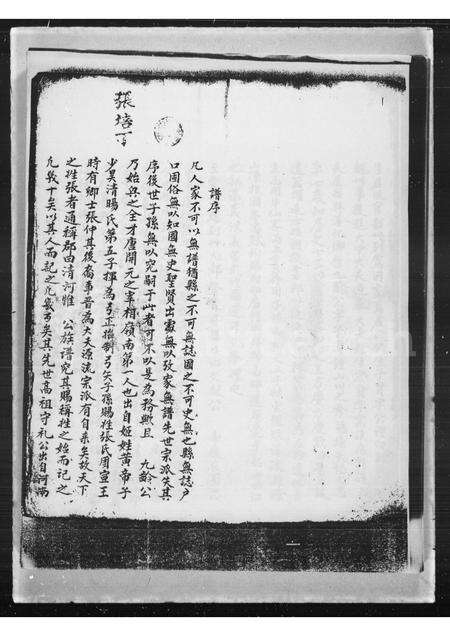 譜序
凡人家不可以無譜猶縣之不可無誌國之不可史無也縣無誌戶
口風俗無以知國無史聖賢出處無以攷家無譜先世宗派失其
序後世子孫無以究嗣于此者可不以是為務歟且 九齡公
乃始興之全才唐開元之宰相嶺南第一人也出自姬姓黃帝子
少昊清陽氏第五子揮為弓正始制弓矢子孫賜姓張氏周宣王
時有卿士張仲其後裔事晉為大夫源流宗派有自來矣故天下
之姓張者通稱郡曰清河惟 公族譜究其賜稱姓之始而記之
九幾十矣以其人而記之九幾弓矣其先世高祖守礼公出自河南
張培